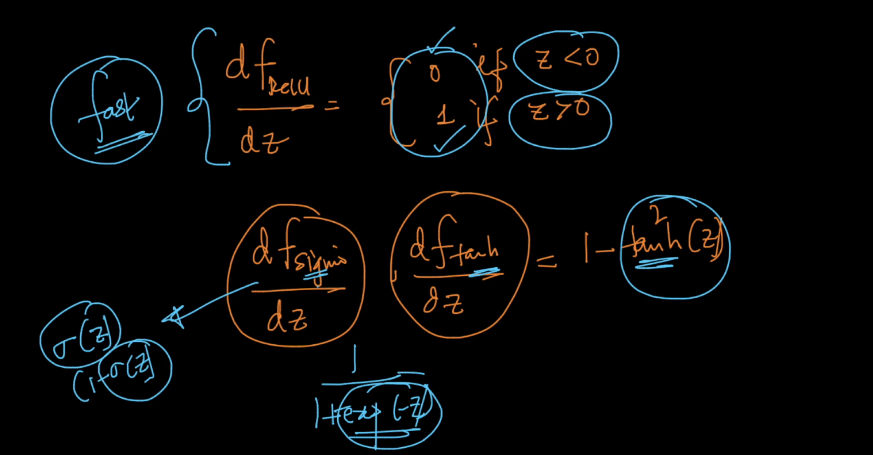 fast
d f relu / dz = { 0 if z < 0
1 if z > 0
d f sigmo / dz
d f tanh / dz = 1 - tanh²(z)
σ(z)
(1-σ(z)
1 / 1+exp(-z)